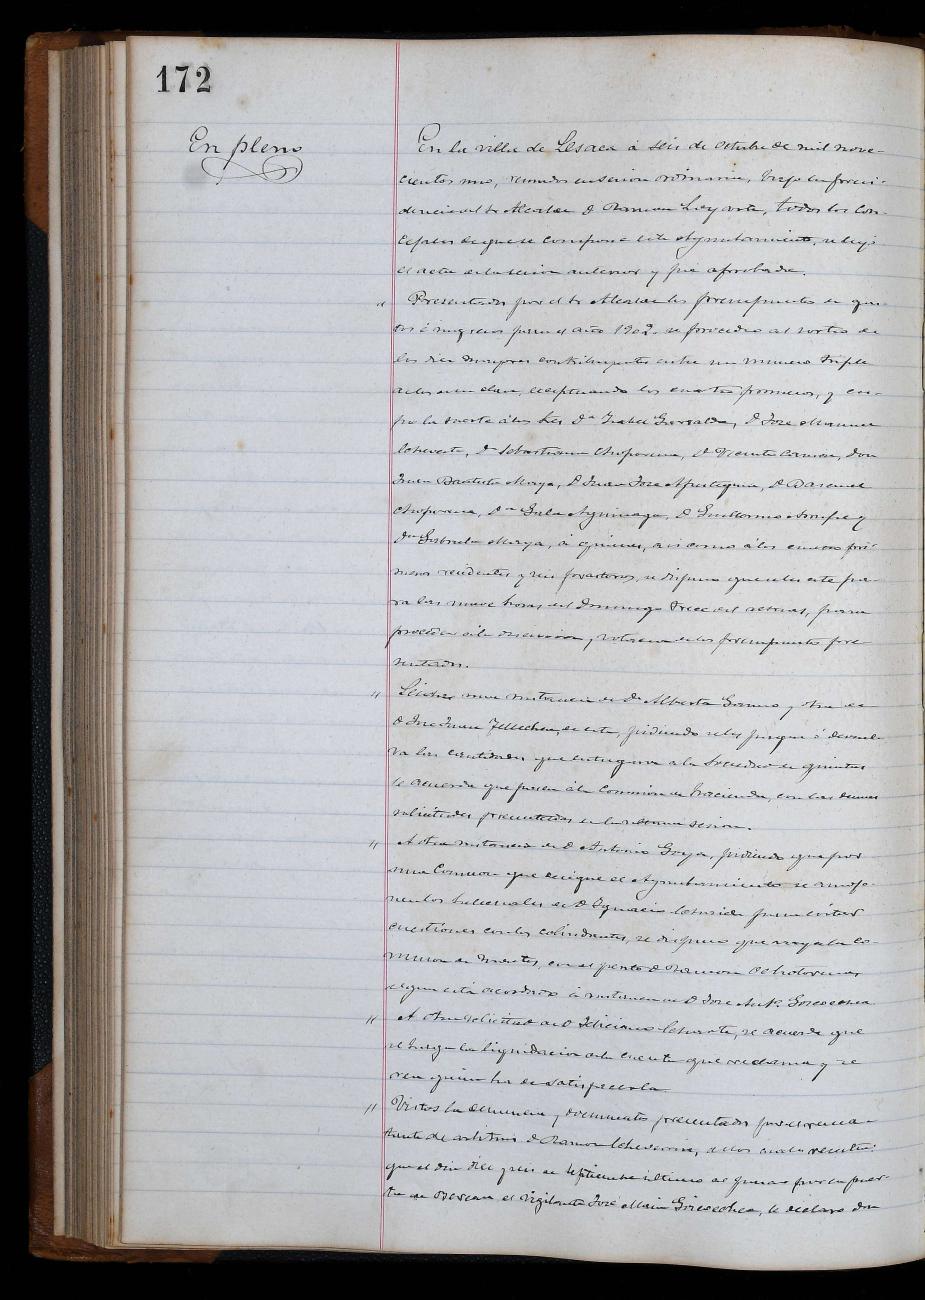 172
En pleno
En la villa de Lesaca á seis de Octubre de mil nove-
cientos uno, reunidos en sesion ordinaria, bajo la presi-
dencia del Sr Alcalde D Ramon Leyarte, todos los Con-
cejales de que se compone este Ayuntamiento, se leyó
el acta de la sesion anterior y fué aprobada.
" Presentados por el Sr Alcalde los presupuestos de gas-
tos é ingresos para el año 1902. se procedió al sorteo de
los diez mayores contribuyentes entre un número triple
de los de su clase, exceptuando los cuatro primeros, y cu-
po la suerte á los Sres Dª Isabel D Jose Manuel
Echeveste, Dª Sebastiana Choperena, D Vicente don
Juan Bautista Maya, D Juan Jose Apesteguia, D Pascual
Choperena, Dª Aguinaga, D Guillermo y
Dª Gabriela Maya, á quienes, asi como á los cuatro pri-
meros residentes y seis forasteros, se dispuso que se les cite pa-
ra las nueve horas del Domingo trece del actual, para
proceder á la discusion y votacion de los presupuestos pre-
sentados.
" Leidas una instancia de Dª Alberta y otra de
D Jose Juan Tellechea, de esta, pidiendo se les pague ó devuel-
va las cantidades que entregaron a la Sociedad de quintas
se acuerda que pasen á la Comision de Hacienda, con las demas
solicitudes presentadas en la última sesion.
" A otra instancia de D Antonio Goya, pidiendo que por
una Comision que designe el Ayuntamiento se amojo-
nen los de D Ignacio para evitar
cuestiones con los colindantes, se dispuso que vaya la Co-
mision de Montes, con el perito D Ramon
segun está acordado á instancia de D Jose Goicoechea
" A otra solicitud de D Feliciano se acuerda que
se haga la liquidacion de la cuenta que reclama y se
vea quien ha de satisfacerla
" Vistos la denuncia y documentos presentados por el rema-
tante de arbitrios D Ramon Echeverria, de los cuales resulta:
que el dia diez y seis de Septiembre último al pasar por la puer-
ta de el Vigilante José Maria Goicoechea, le declaró don